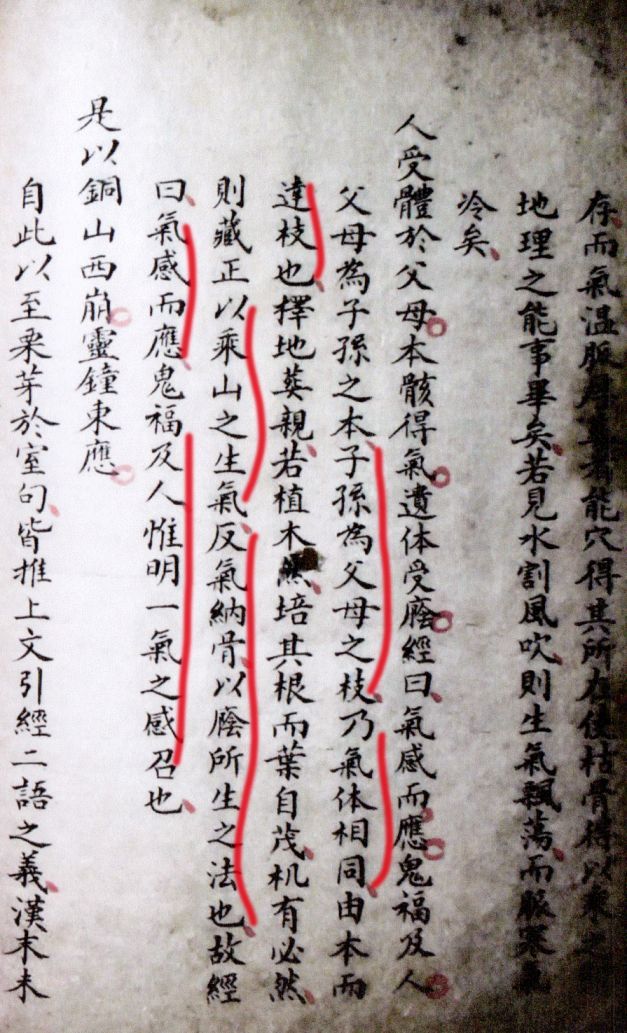 存而氣溫能穴得其所在使枯骨得以乘
地理之能事畢矣若見水割風吹則生氣飄蕩而脈寒氣
冷矣
人受體於父母本骸得氣遺体受廕經曰氣感而應鬼福及人
父母為子孫之本子孫為父母之枝乃氣体相同由本而
達枝也擇地葬親若植木然培其根而葉自茂机有必然
則藏正以乘山之生氣反氣納骨以廕所生之法也故經
曰氣感而應鬼福及人惟明一氣之感召也
是以銅山西崩靈鐘東應
自此以至栗芽於室句皆推上文引經二語之義漢末未